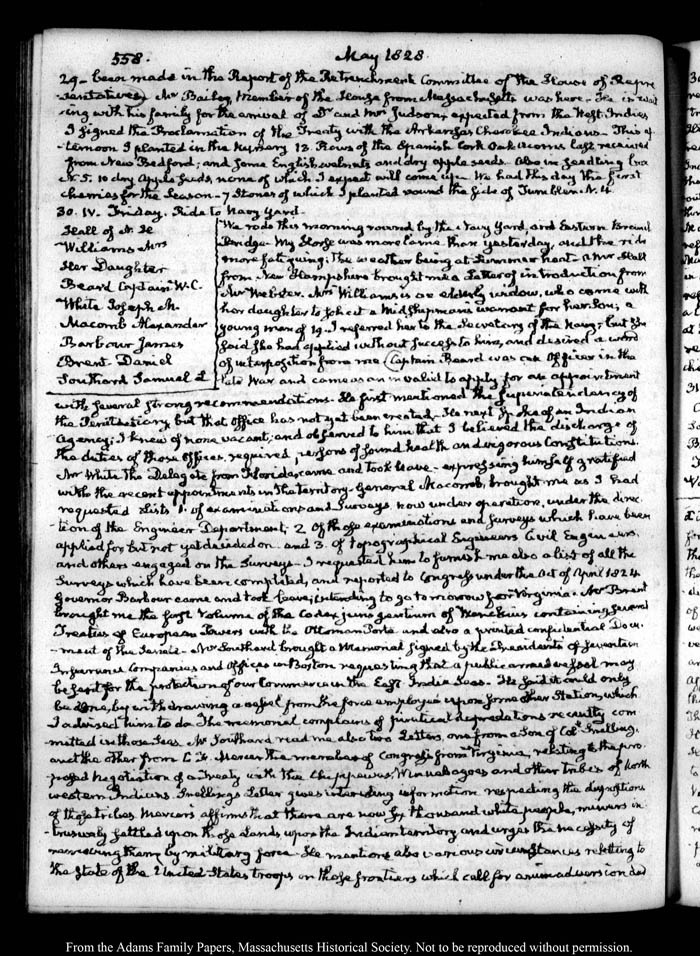 558.
May 1828
29- been made in the Report of the Retrenchment Committee of the House of Repre
sentatives) Mr Bailey, Member of the House from Massachusetts was here. He is wait
ing with his family for the arrival of Dr and Mrs Judson, expected from the West Indies
I signed the Proclamation of the Treaty with the Arkansas Cherokee Indians. This af
ternoon I planted in the Nursery 13 Rows of the Spanish Cork Oak acorns last received
from New Bedford; and some English walnuts and dry apple seeds. Also in seedling
N. 5. 10 dry Apple seeds, none of which I expect will come up. We had this day the first
cherries for the Season- 7 Stones of which I planted round the side of Tumbler N. 4
30. IV. Friday. Ride to Navy Yard.
Hall of N. H
Williams Mrs
Her Daughter
Beard Captain W. C.
White Joseph M.
Macomb Alexander
Barbour James
Brent Daniel
Southard Samuel L
We rode this morning round by the Navy Yard, and Eastern Branch
Bridge- My Horse was more lame than yesterday, and the ride
more fatiguing; the weather being at Summer heat. a Mr Hall
from New Hampshire brought me a Letter of introduction from
Mr Webster. Mrs Williams is an elderly widow, who came with
her daughter to solicit a Midshipman's warrant for her Son; a
young man of 19. I referred her to the Secretary of the Navy; but she
said she had applied without success to him, and desired a word
of interposition from me (Captain Beard was an Officer in the
late War and came as an invalid to apply for an appointment
with several strong recommendations. He first mentioned the superintendency of
the Penitentiary but that office has not yet been created. He next spoke of an Indian
Agency; I knew of none vacant; and observed to him that I believed the discharge of
the duties of those offices, required persons of sound health and vigorous Constitutions.
Mr White the Delegate from Florida, came and took leave- expressing himself gratified
with the recent appointments in the Territory. General Macomb, brought me as I had
requested Lists 1. of examinations and Surveys, now under operation, under the direc
tion of the Engineer Department; 2 of those examinations and surveys which have been
applied for but not yet decided on. and 3. of topographical Engineers Civil Engineers,
and others engaged on the Surveys. I requested him to furnish me also a list of all the
Surveys which have been completed, and reported to Congress under the Act of April 1824
Governor Barbour came and took leave; intending to go tomorrow for Virginia. Mr Brent
brought me the first volume of the Codex juris gentium of Wenckius containing several
Treaties of European Powers with the Ottoman Porte and also a printed confidential Docu-
-ment of the Senate. Mr Southard brought a Memorial signed by the Presidents of seventeen
Insurance Companies and Offices in Boston requesting that a public armed vessel may
be sent for the protection of our Commerce in the East India Seas. He said it could only
be done, by withdrawing a vessel from the force employed upon some other Station, which
I advised him to do. The memorial complains of piratical depredations recently com
mitted in those Seas. Mr Southard read me also two Letters, one from a Son of Coll Snelling,
and the other from C. F. Mercer the member of Congress from Virginia, relating to the pro
posed Negotiation of a Treaty with the Chippewas, Winnebagoes and other tribes of North
western Indians. Snelling's Letter gives interesting information respecting the dispositions
of those tribes. Mercer's affirms that there are now six thousand white people, miners in
trusively settled upon those Lands upon the Indian territory and urges the necessity of
removing them by military force. He mentions also various circumstances relating to
the State of the United States troops on those frontiers which call for animadversion and
From the Adams Family Papers, Massachusetts Historical Society. Not to be reproduced without permission.